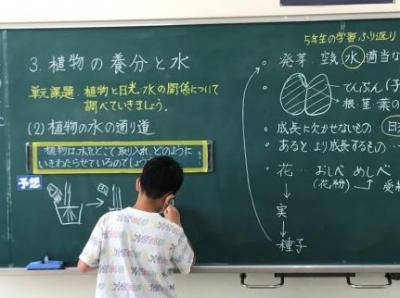 3. 植物の養分と水
単元課題. 植物と日光、水の関係について
調べていきましょう。
(2) 植物の水の通り道
植物は、水をどこで取り入れ、どのように
いきわたらせているのでしょうか。
予想
5年生の学習ふり返り
発芽. 空気 水 適当な
でんぷん(子
根・茎・葉の
成長に欠かせないもの 日
あると、より成長するもの…
花… おしべ めしべ
(花粉)
↓
実
↓
種子